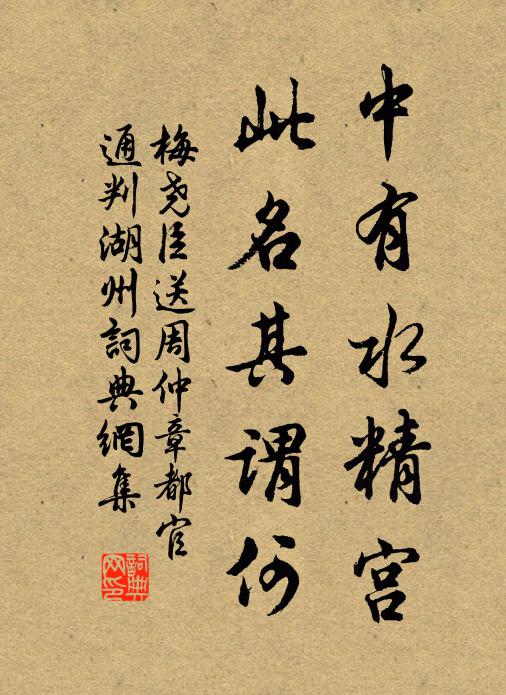 中有水精宮
此名其謂何
梅堯臣送周仲章都官
通判湖州詞典網集
詞典网印